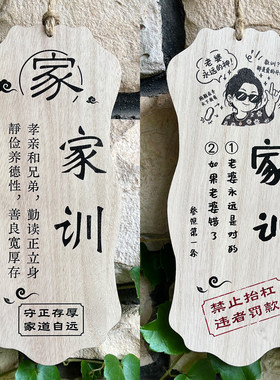 家
家训
孝亲和兄弟，勤读正立身
静俭养德性，善良宽厚存
守正存厚
家道自远
老婆
永远的神！
家训
①老婆永远是对的
②如果老婆错了
参照第一条
禁止抬杠
违者罚款